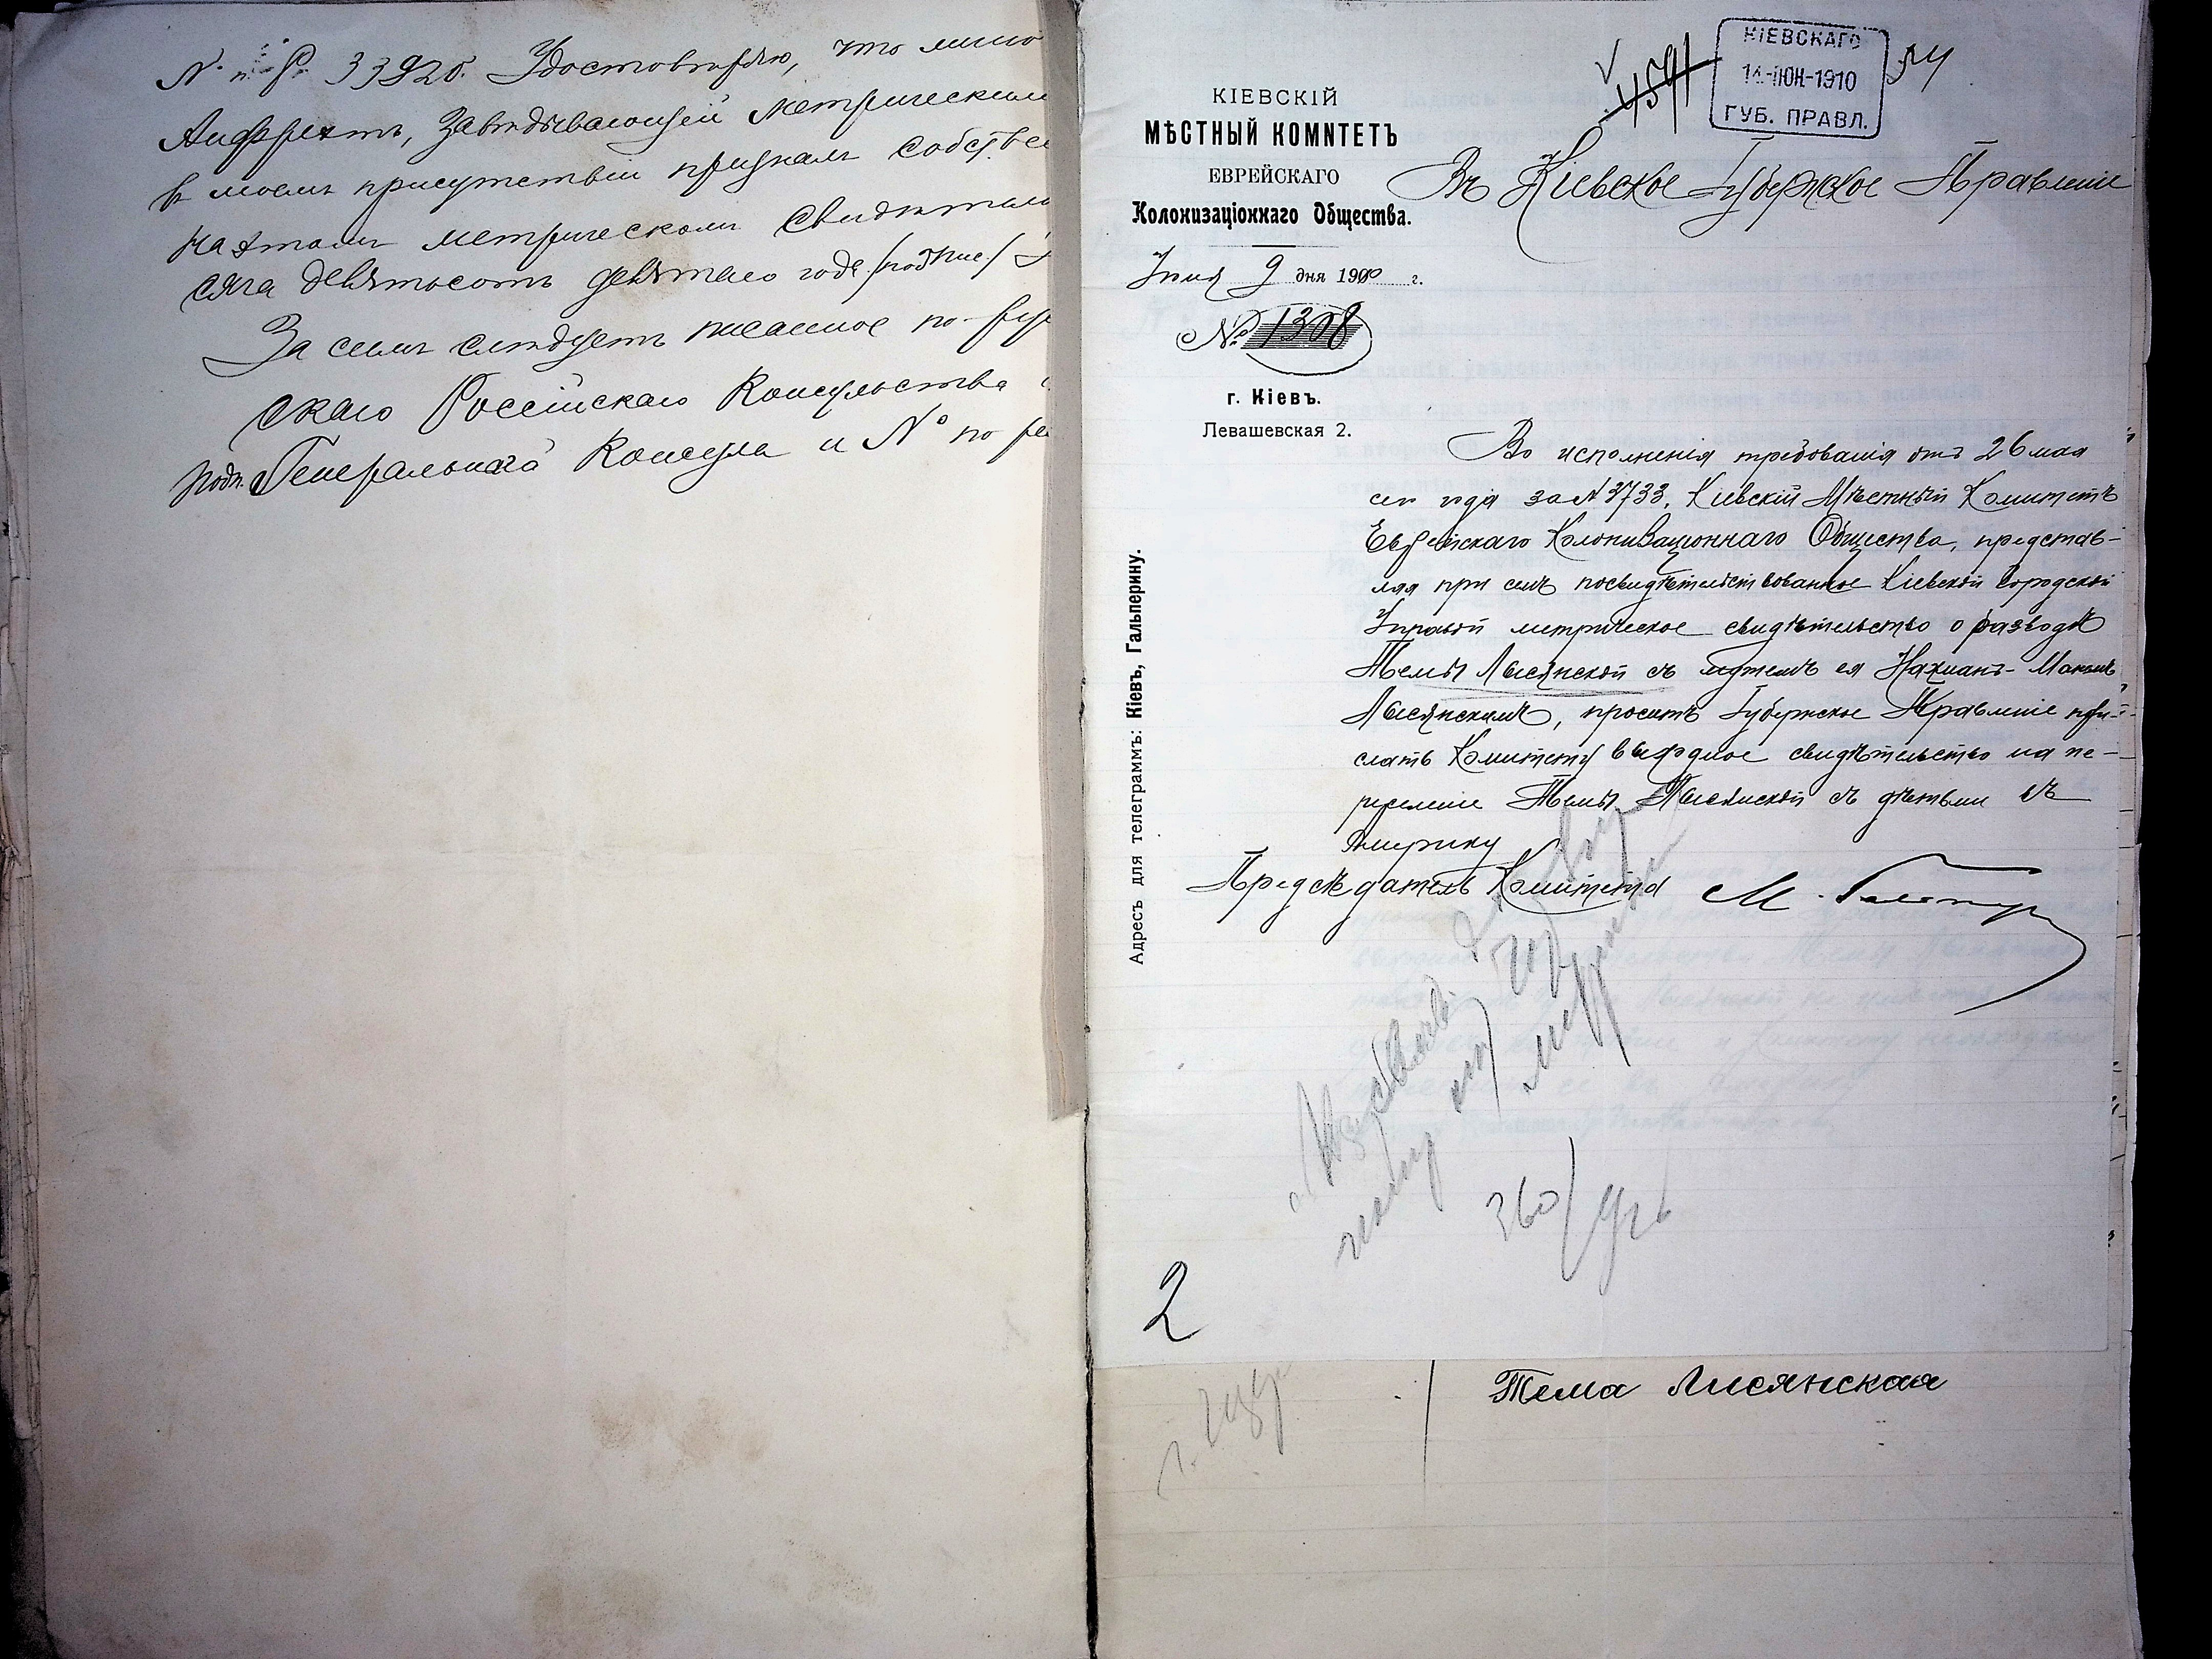 33920. Удостовѣряю, что мною
завѣдывающей метрическим
в моемъ присутствіи призналъ собстве
на этомъ метрическомъ свидѣтел
сяча девятьсотъ девятаго года /подпис./
За симъ слѣдуетъ писанное по-
скаго Россійскаго Консульства
подп. Генеральнаго Консула и № по
4591
КІЕВСКАГО
14-ІЮН-1910
ГУБ. ПРАВЛ.
КІЕВСКІЙ
МѢСТНЫЙ КОМИТЕТЪ
ЕВРЕЙСКАГО
Колонизаціоннаго Общества.
Въ Кіевское Губернское Правленіе
Іюня 9 дня 1910 г.
№ 1308
г. Кіевъ.
Левашевская 2.
Адресъ для телеграммъ: Кіевъ, Гальперину.
Во исполненія требованія отъ 26 мая
сего года за № 3733, Кіевскій Мѣстный Комитетъ
Еврейскаго Колонизаціоннаго Общества, представ-
ляя при семъ посвидѣтельствованное Кіевской Городской
Управой метрическое свидѣтельство о разводѣ
Темы Лисянской съ мужемъ ея Нахманъ-
Лисянскимъ, проситъ Губернское Правленіе при-
слать Комитету выходное свидѣтельство на пе-
реселеніе Темы Лисянской съ дѣтьми въ
Америку
Предсѣдатель Комитета М. Гальпер
360
2
Тема Лисянская